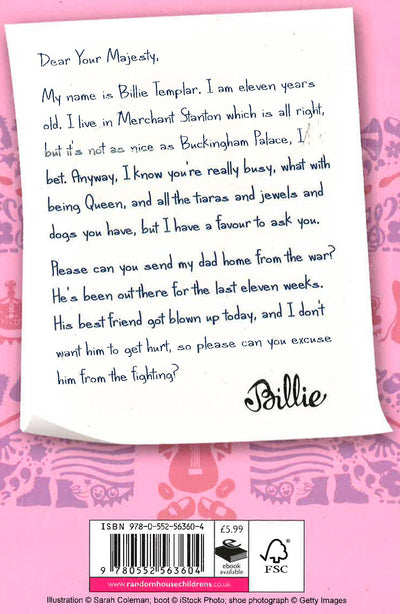 Dear Your Majesty,
My name is Billie Templar. I am eleven years
old. I live in Merchant Stanton which is all right,
but it's not as nice as Buckingham Palace, I
bet. Anyway, I know you're really busy, what with
being Queen, and all the tiaras and jewels and
dogs you have, but I have a favour to ask you.
Please can you send my dad home from the war?
He's been out there for the last eleven weeks.
His best friend got blown up today, and I don't
want him to get hurt, so please can you excuse
him from the fighting?
Billie
ISBN 978-0-552-56360-4
9 780552 563604
£5.99
ebook
available
FSC
www.randomhousechildrens.co.uk
Illustration © Sarah Coleman; boot © iStock Photo; shoe photograph © Getty Images